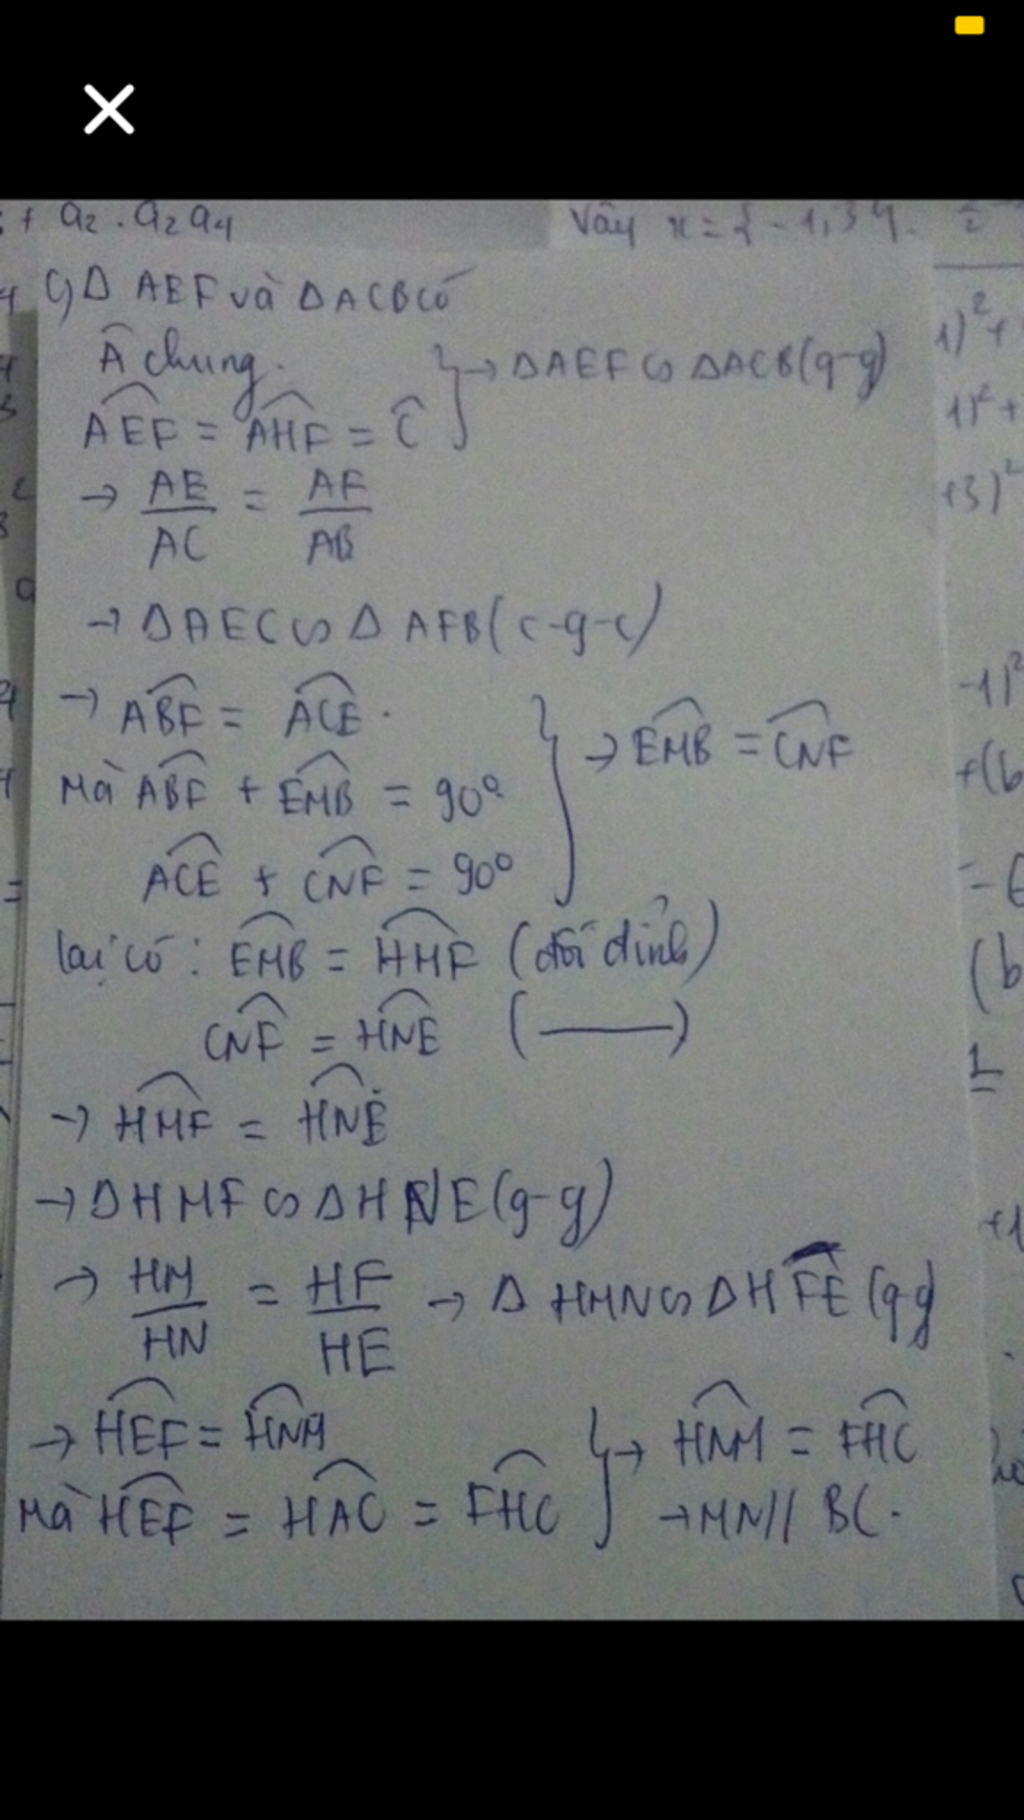 + a₂ . a₂ a₄
Vậy x = {-1, 3}.
c) Δ AEF và Δ ACB có
 chung.
AEF = AHF = Ĉ
→ ΔAEF ∽ ΔACB (g-g)
→ AE/AC = AF/AB
→ ΔAEC ∽ Δ AFB (c-g-c)
→ ABF = ACE.
Mà ABF + EMB = 90°
ACE + CNF = 90°
→ EMB = CNF
lại có: EMB = HMF (đối đỉnh)
CNF = HNE (———)
→ HMF = HNE
→ ΔHMF ∽ ΔHNE (g-g)
→ HM/HN = HF/HE → Δ HMN ∽ ΔHFE (gg)
→ HEF = HNM
Mà HEF = HAC = FHC
→ HNM = FHC
→ MN // BC.